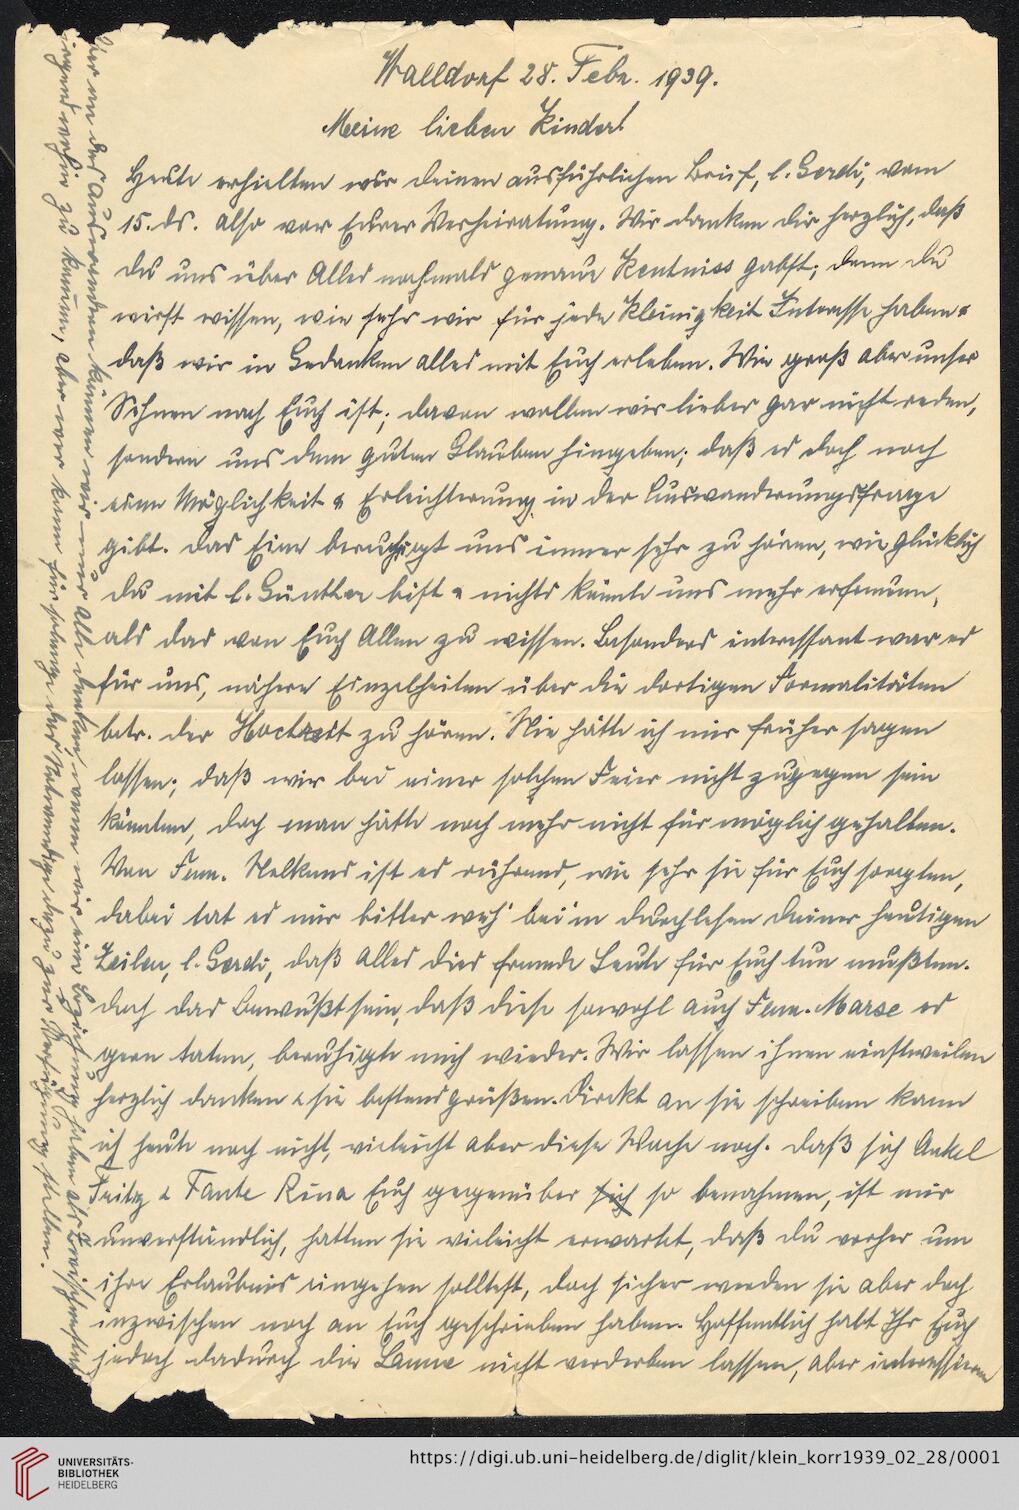 Walldorf 28. Febr. 1939.
Meine lieben Kinder!
Heute erhielten wir deinen ausführlichen Brief, l. Gerdi, vom
15. ds. also vor Eurer Verheiratung. Wir danken dir herzlich, daß
du uns über Alles nochmals genaue Kentniss gabst; denn du
wirst wissen, wie sehr wir für jede Kleinigkeit Interesse haben &
daß wir in Gedanken alles mit Euch erleben. Wie groß aber unser
Sehnen nach Euch ist; davon wollen wir lieber gar nicht reden,
sondern uns dem guten Glauben hingeben; daß es doch noch
eine Möglichkeit & Erleichterung in der Auswanderungsfrage
gibt. Das Eine beruhigt uns immer sehr zu hören, wie glücklich
du mit l. Günther bist & nichts könnte uns mehr erfreuen,
als das von Euch Allen zu wissen. Besonders interessant war es
für uns, nähere Einzelheiten über die dortigen Formalitäten
betr. der Hochzeit zu hören. Nie hätte ich mir früher sagen
lassen; daß wir bei einer solchen Feier nicht zugegen sein
könnten, doch man hätte noch mehr nicht für möglich gehalten.
Von Fam. Nelkens ist es rührend, wie sehr sie für Euch sorgten,
dabei tat es mir bitter weh' bei'm durchlesen deiner heutigen
Zeilen, l. Gerdi, daß alles dies fremde Leute für Euch tun mußten.
doch das Bewußtsein, daß diese sowohl auch Fam. Marx es
gern taten, beruhigte mich wieder. Wir lassen ihnen einstweilen
herzlich danken & sie bestens grüßen. Direkt an sie schreiben kann
ich heute noch nicht, vieleicht aber diese Woche noch. Daß sich Onkel
Fritz & Tante Rina Euch gegenüber sich so benahmen, ist mir
unverständlich, hatten sie vieleicht erwartet, daß du vorher um
ihre Erlaubnis eingehen solltest, doch sicher werden sie aber doch
inzwischen noch an Euch geschrieben haben. Hoffentlich habt Ihr Euch
jedoch dadurch die Laune nicht verderben lassen, aber interessieren
an das Auswandern können wir nur alle denken, wenn wir eine Beziehung haben als Zwischenstation
irgend wohin zu kommen, aber wer kann für solange das Notwendige dazu zur Verfügung stellen.
UNIVERSITÄTS-
BIBLIOTHEK
HEIDELBERG
https://digi.ub.uni-heidelberg.de/diglit/klein_korr1939_02_28/0001